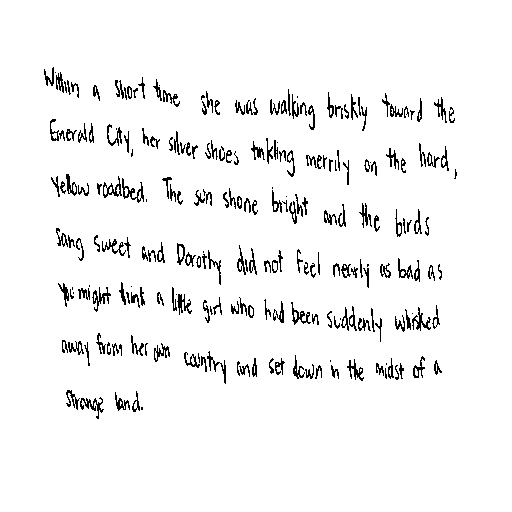 Within a short time she was walking briskly toward the
Emerald City, her silver shoes tinkling merrily on the hard,
yellow roadbed. The sun shone bright and the birds
sang sweet and Dorothy did not feel nearly as bad as
you might think a little girl who had been suddenly whisked
away from her own country and set down in the midst of a
strange land.